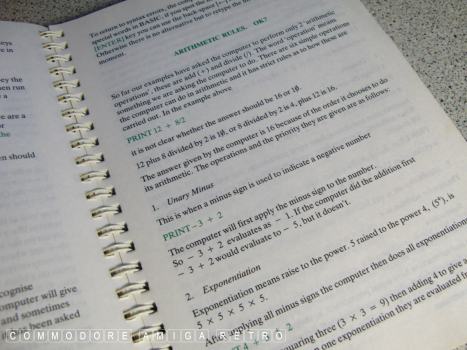 To return to syntax errors, the comp
special words in BASIC, if you spell
[ENTER] key you can use the backspace
Otherwise there is no alternative but to retype the
moment.
ARITHMETIC RULES. OK?
So far our examples have asked the computer to perform only 2 'arithmetic
operations', these are add (+) and divide (/). The word 'operation' means
something we are asking the computer to do. There are six simple operations
the computer can do in arithmetic and it has strict rules as to how these are
carried out. In the example above
PRINT 12 + 8/2
it is not clear whether the answer should be 16 or 10.
12 plus 8 divided by 2 is 10, or 8 divided by 2 is 4, plus 12 is 16.
The answer given by the computer is 16 because of the order it chooses to do
its arithmetic. The operations and the priority they are given are as follows:
1. Unary Minus
This is when a minus sign is used to indicate a negative number
PRINT-3 + 2
The computer will first apply the minus sign to the number.
So - 3 + 2 evaluates as - 1. If the computer did the addition first
- 3 + 2 would evaluate to - 5, but it doesn't.
2. Exponentiation
Exponentiation means raise to the power. 5 raised to the power 4, (5⁴), is
5 × 5 × 5 × 5.
After applying all minus signs the computer then does all exponentiation
squaring three (3 × 3 = 9) then adding 4 to give a
one exponentiation they are evaluated
eys
re in
bey the
en run
e a
re are a
for
the
en should
cognise
mputer will give
and sometimes
has been asked
COMMODORE AMIGA RETRO